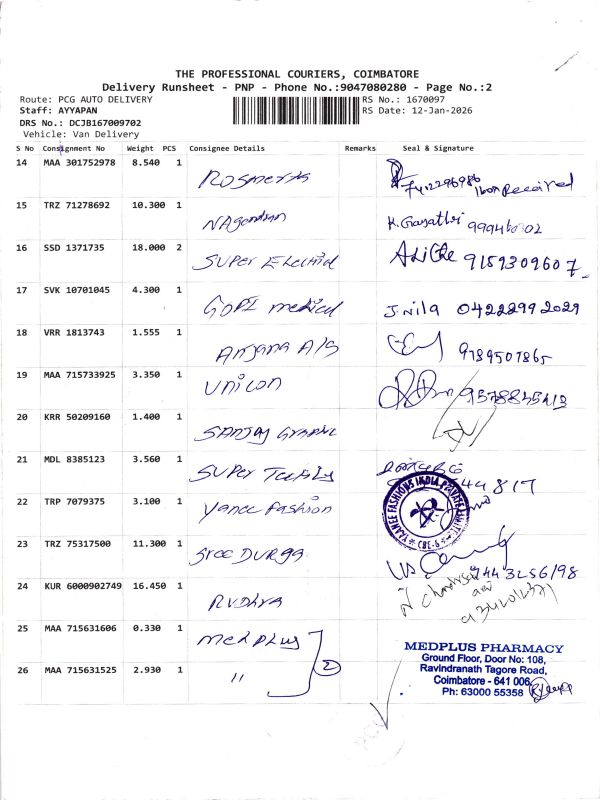 THE PROFESSIONAL COURIERS, COIMBATORE
Delivery Runsheet - PNP - Phone No.:9047080280 - Page No.:2
Route: PCG AUTO DELIVERY
RS No.: 1670097
Staff: AYYAPAN
RS Date: 12-Jan-2026
DRS No.: DCJB167009702
Vehicle: Van Delivery
S No Consignment No Weight PCS Consignee Details Remarks Seal & Signature
14 MAA 301752978 8.540 1
Received
15 TRZ 71278692 10.300 1
K. Gayathri
16 SSD 1371735 18.000 2 Super
9159309607
17 SVK 10701045 4.300 1 GOPI medical J. Nila 04222992029
18 VRR 1813743 1.555 1 Anjana A/S 9789507865
19 MAA 715733925 3.350 1 Unicon
20 KRR 50209160 1.400 1 SANJAY
21 MDL 8385123 3.560 1 Super
22 TRP 7079375 3.100 1 Yanee Fashion
YAANEE FASHIONS INDIA PRIVATE LIMITED
23 TRZ 75317500 11.300 1 Sree DURGA
24 KUR 6000902749 16.450 1 RUDHRA
25 MAA 715631606 0.330 1 medplus
2
26 MAA 715631525 2.930 1 "
MEDPLUS PHARMACY
Ground Floor, Door No: 108,
Ravindranath Tagore Road,
Coimbatore - 641 006.
Ph: 63000 55358